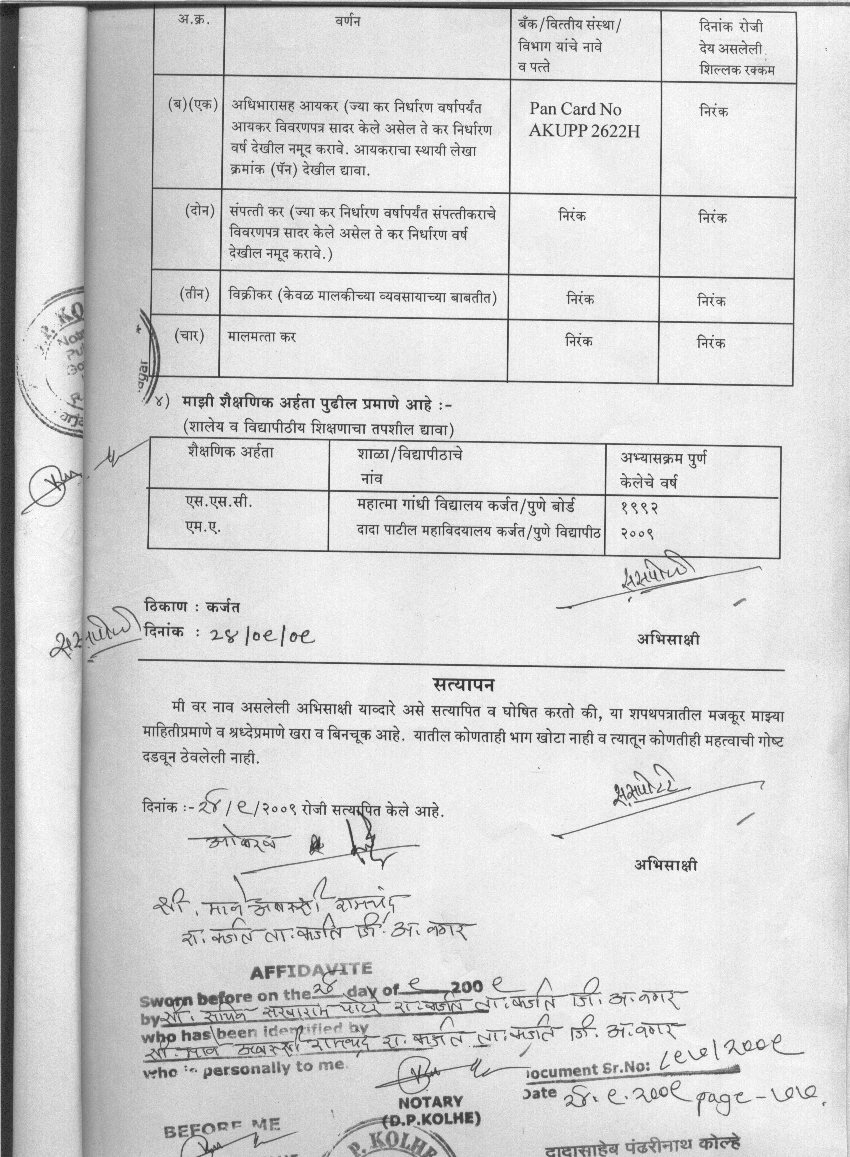 अ.क्र. वर्णन बँक/वित्तीय संस्था/ दिनांक रोजी
विभाग यांचे नावे देय असलेली
व पत्ते शिल्लक रक्कम
(ब)(एक) अधिभारासह आयकर (ज्या कर निर्धारण वर्षापर्यंत Pan Card No निरंक
आयकर विवरणपत्र सादर केले असेल ते कर निर्धारण AKUPP 2622H
वर्ष देखील नमूद करावे. आयकराचा स्थायी लेखा
क्रमांक (पॅन) देखील द्यावा.
(दोन) संपत्ती कर (ज्या कर निर्धारण वर्षापर्यंत संपत्तीकराचे निरंक निरंक
विवरणपत्र सादर केले असेल ते कर निर्धारण वर्ष
देखील नमूद करावे.)
(तीन) विक्रीकर (केवळ मालकीच्या व्यवसायाच्या बाबतीत) निरंक निरंक
(चार) मालमत्ता कर निरंक निरंक
४) माझी शैक्षणिक अर्हता पुढील प्रमाणे आहे :-
(शालेय व विद्यापीठीय शिक्षणाचा तपशील द्यावा)
शैक्षणिक अर्हता शाळा/विद्यापीठाचे अभ्यासक्रम पुर्ण
नांव केलेचे वर्ष
एस.एस.सी. महात्मा गांधी विद्यालय कर्जत/पुणे बोर्ड १९९२
एम.ए. दादा पाटील महाविदयालय कर्जत/पुणे विद्यापीठ २००९
ठिकाण : कर्जत
दिनांक : २४/०९/०९
अभिसाक्षी
सत्यापन
मी वर नाव असलेली अभिसाक्षी याव्दारे असे सत्यापित व घोषित करतो की, या शपथपत्रातील मजकूर माझ्या
माहितीप्रमाणे व श्रध्देप्रमाणे खरा व बिनचूक आहे. यातील कोणताही भाग खोटा नाही व त्यातून कोणतीही महत्वाची गोष्ट
दडवून ठेवलेली नाही.
दिनांक :- २४/९/२००९ रोजी सत्यापित केले आहे.
ओळखत
अभिसाक्षी
रा. कर्जत ता. कर्जत जि. अ. नगर
AFFIDAVITE
Sworn before on the २४ day of ९ 200 ९
by रा. कर्जत ता. कर्जत जि. अ. नगर
who has been identified by
रा. कर्जत ता. कर्जत जि. अ. नगर
who is personally to me.
Document Sr.No:
Date २४.९.२००९ page -
NOTARY
(D.P.KOLHE)
BEFORE ME
P. KOLHE
दादासाहेब पंढरीनाथ कोल्हे